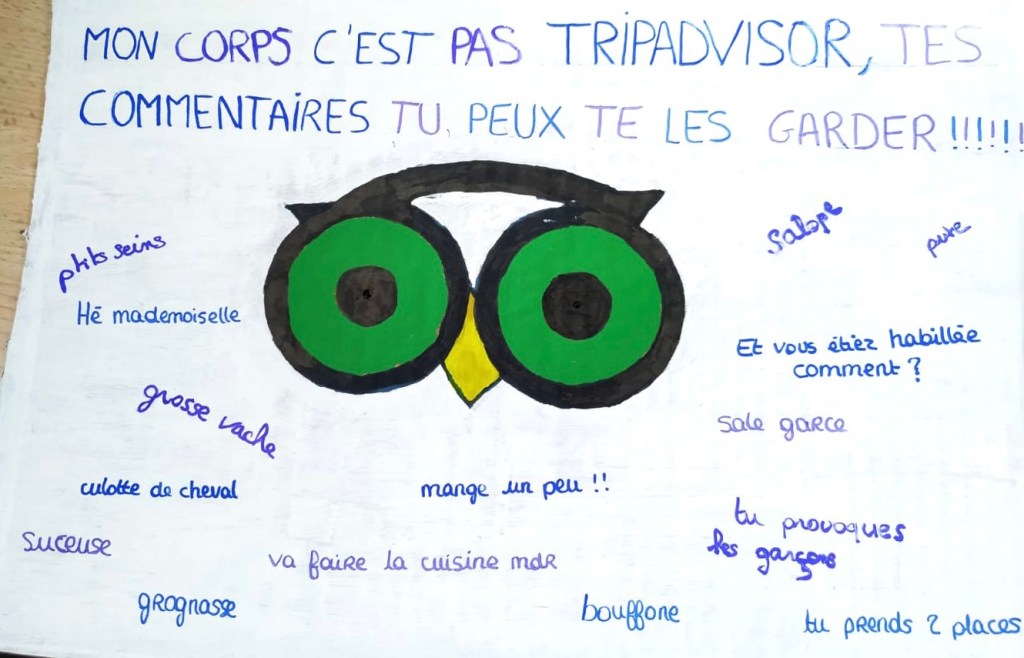 MON CORPS C'EST PAS TRIPADVISOR, TES
COMMENTAIRES TU PEUX TE LES GARDER !!!!!!
salope
pute
ptits seins
Hé mademoiselle
Et vous étiez habillée
comment ?
grosse vache
sale garce
culotte de cheval
mange un peu !!
tu provoques
les garçons
suceuse
va faire la cuisine mdr
grognasse
bouffone
tu prends 2 places